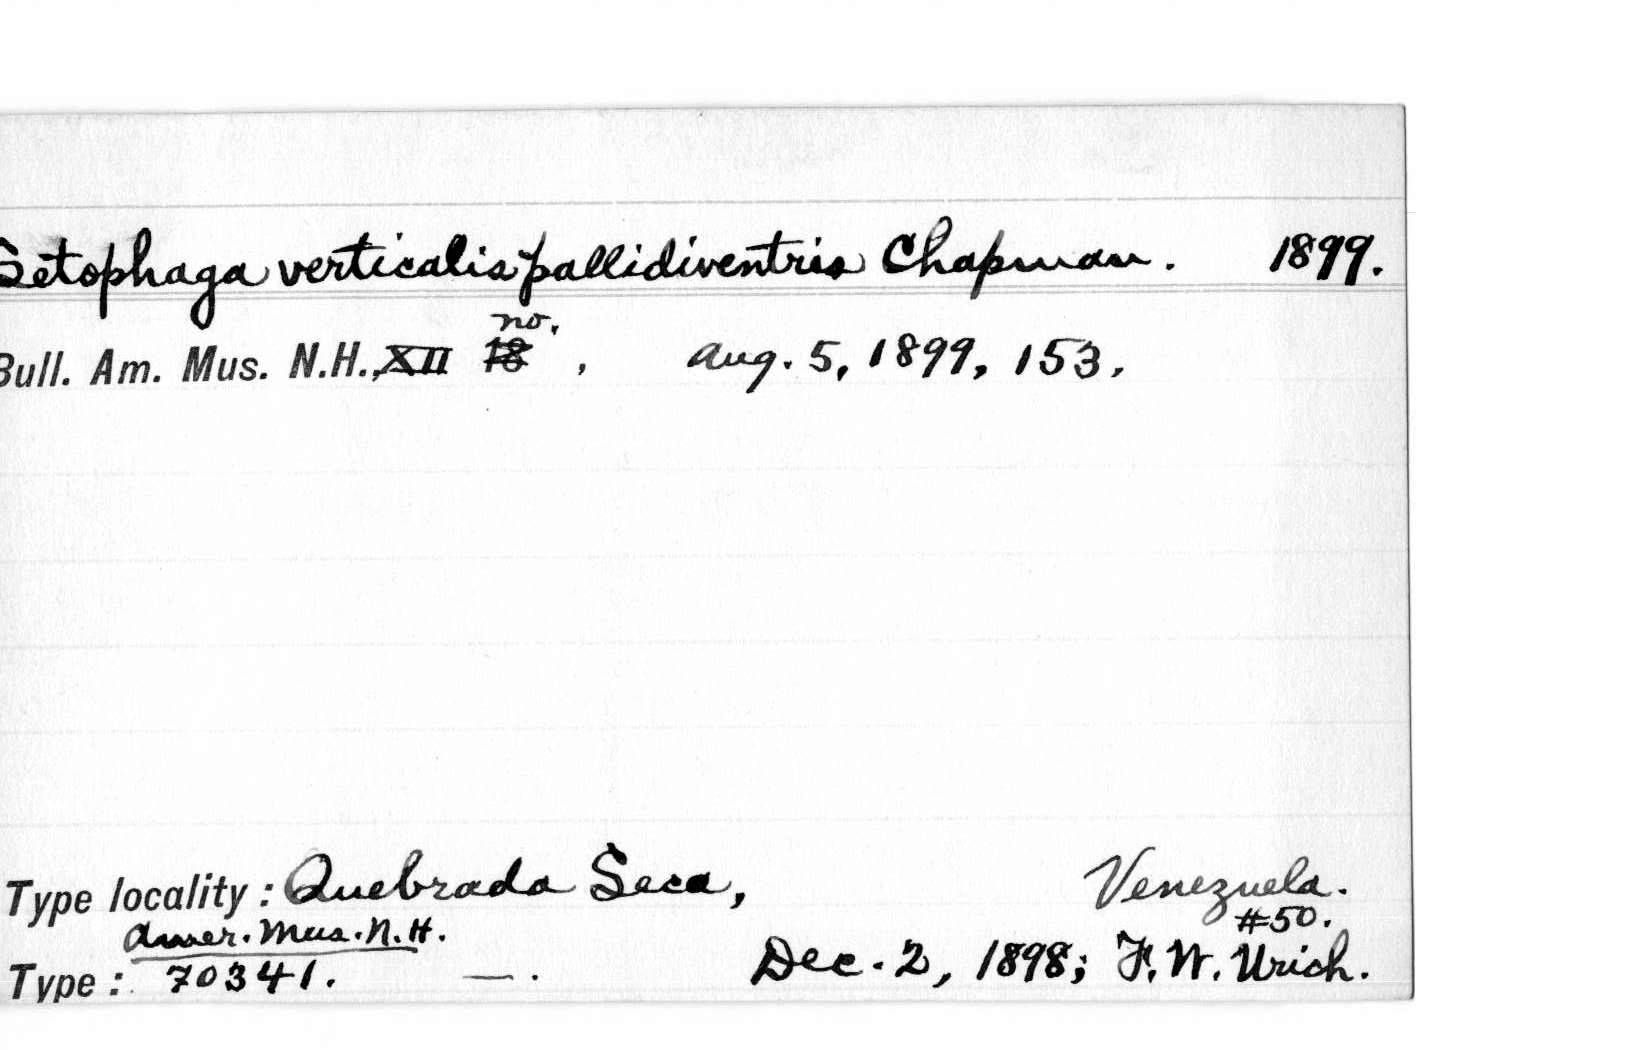 Setophaga verticalis pallidiventris Chapman. 1899.
no.
Bull. Am. Mus. N.H., XII 18 , Aug. 5, 1899, 153.
Type locality: Quebrada Seca, Venezuela.
Amer. Mus. N.H. #50.
Type: 70341. — . Dec. 2, 1898; F. W. Urich.